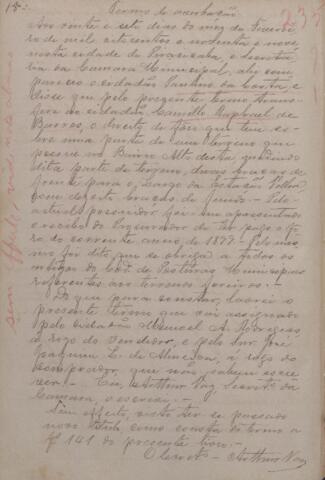 Termo de
Aos vinte e sete dias do mez de
de mil oitocentos e noventa e nove,
nesta cidade de Piracicaba, e Secretaria
da Camara Municipal, ahi com-
pareceo o cidadão da Costa, e
disse que pelo presente termo trans-
fere ao cidadão Camillo Raphael de
Barros, o direito de que tem so-
bre uma parte de um terreno que
possue no Bairro Alto desta, medindo
dita parte de terreno, duas braças de
frente para o Largo da Estação
com braças de fundo. Pelo
actual possuidor foi-me apresentado
o recibo do Procurador de ter pago o
do corrente anno de 1899. Pelo mes-
mo foi dito que se obriga a todos os
do Cod. de Posturas Municipaes
referentes aos terrenos
Do que para constar, lavrei o
presente termo que vai assignado
pelo cidadão Manoel A. Rodrigues
a rogo do Vendedor, e pelo Snr. José
Joaquim L. de Almeida, á rogo do
comprador, que não sabem escre-
ver. Eu, Arthur Vaz, Secret.º da
Camara, o escrevi.
Sem effeito, visto ter se passado
novo titulo como consta do termo a
fl 141 do presente livro.
O Secret.º Arthur Vaz
sem effeito, vide nota